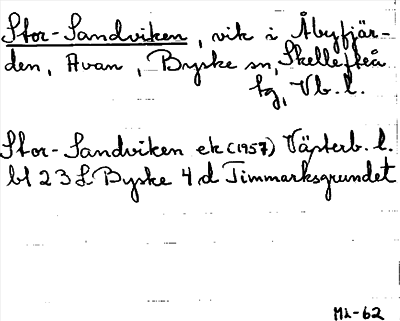 Stor-Sandviken, vik i Åbyfjär-
den, Avan, Byske sn, Skellefteå
tg, Vb. l.
Stor-Sandviken ek (1957) Västerb. l.
bl 23 L Byske 4 d Timmarksgrundet
Mh-62